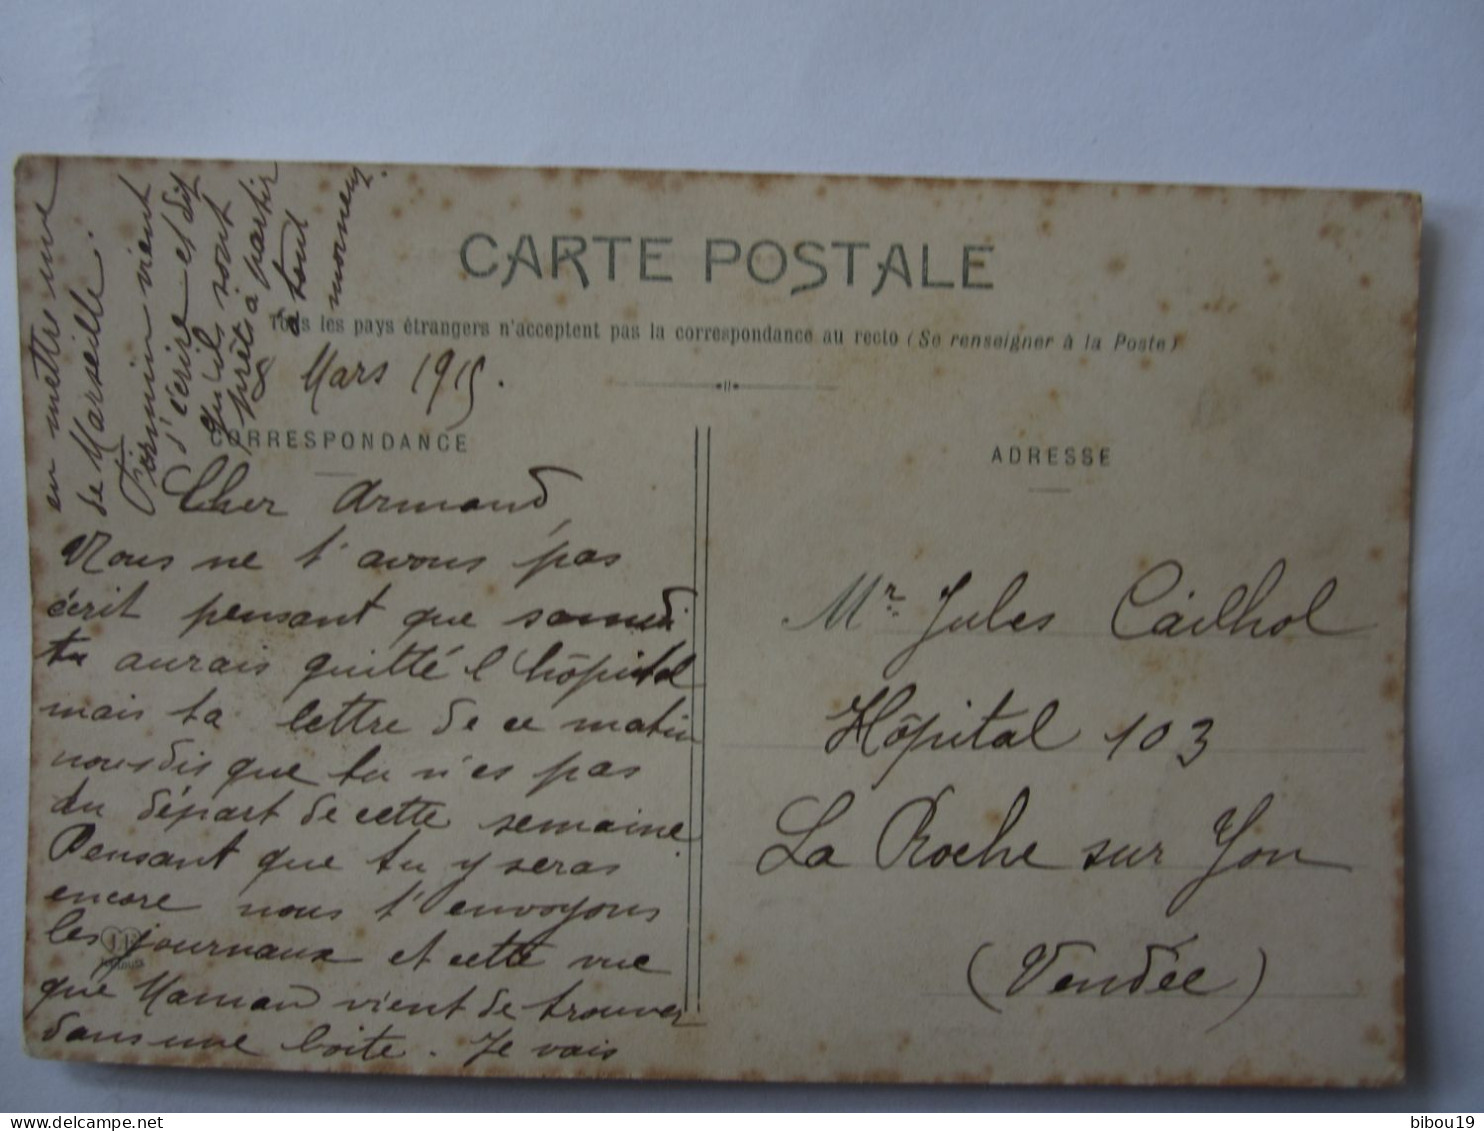 CARTE POSTALE
Tous les pays étrangers n'acceptent pas la correspondance au recto (Se renseigner à la Poste)
8 Mars 1915.
CORRESPONDANCE
ADRESSE
Cher Armand,
Nous ne t'avons pas
écrit pensant que samedi
tu aurais quitté l'hôpital
mais ta lettre de ce matin
nous dis que tu n'es pas
du départ de cette semaine.
Pensant que tu y seras
encore nous t'envoyons
les journaux et cette vue
que Maman vient de trouver
dans une boite. Je vais
en mettre une
de Marseille.
Firmin vient
d'écrire et dit
qu'ils sont
prêts à partir
à tout
moment.
Mr. Jules Cailhol
Hôpital 103
La Roche sur Yon
(Vendée)
bibou19